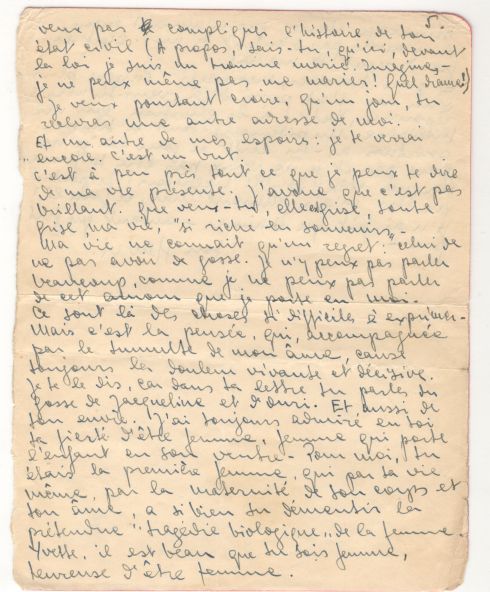 5.
veux pas compliquer l'histoire de ton
état civil (A propos, sais-tu, qu'ici, devant
la loi je suis un homme marié. Imagines-
je ne peux même pas me marier! Quel drame!)
Je veux pourtant croire, qu'un jour, tu
recevras une autre adresse de moi.
Et un autre de mes espoirs: je te verrai
encore. C'est un but.
C'est à peu près tout ce que je peux te dire
de ma vie présente. J'avoue que c'est pas
brillant. Que veux-tu, elle grise, toute
grise, ma vie, "si riche en souvenirs".
Ma vie ne connait qu'un regret: celui de
ne pas avoir de gosse. Je n'y peux pas parler
beaucoup, comme je ne peux pas parler
de cet amour que je porte en moi.
Ce sont là des choses si difficiles à exprimer-
Mais c'est la pensée, qui, accompagnée
par le tumulte de mon âme, cause
toujours la douleur vivante et décisive.
Je te le dis, car dans ta lettre tu parles du
gosse de Jacqueline et d'Ouri. Et aussi de
ton envie. J'ai toujours admiré en toi
ta fierté d'être femme, femme qui porte
l'enfant en son ventre. Pour moi, tu
étais la première femme, qui par sa vie
même, par la maternité de son corps et
son âme, a si bien su démentir la
prétendue "tragédie biologique" de la femme.
Yvette, il est beau que tu sois femme,
heureuse d'être femme.